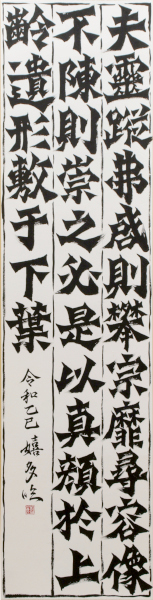 夫靈蹤弗啟則攀宗靡尋容像
不陳則崇之必是以真顏於上
齡遺形敷于下葉
令和乙巳 嬉